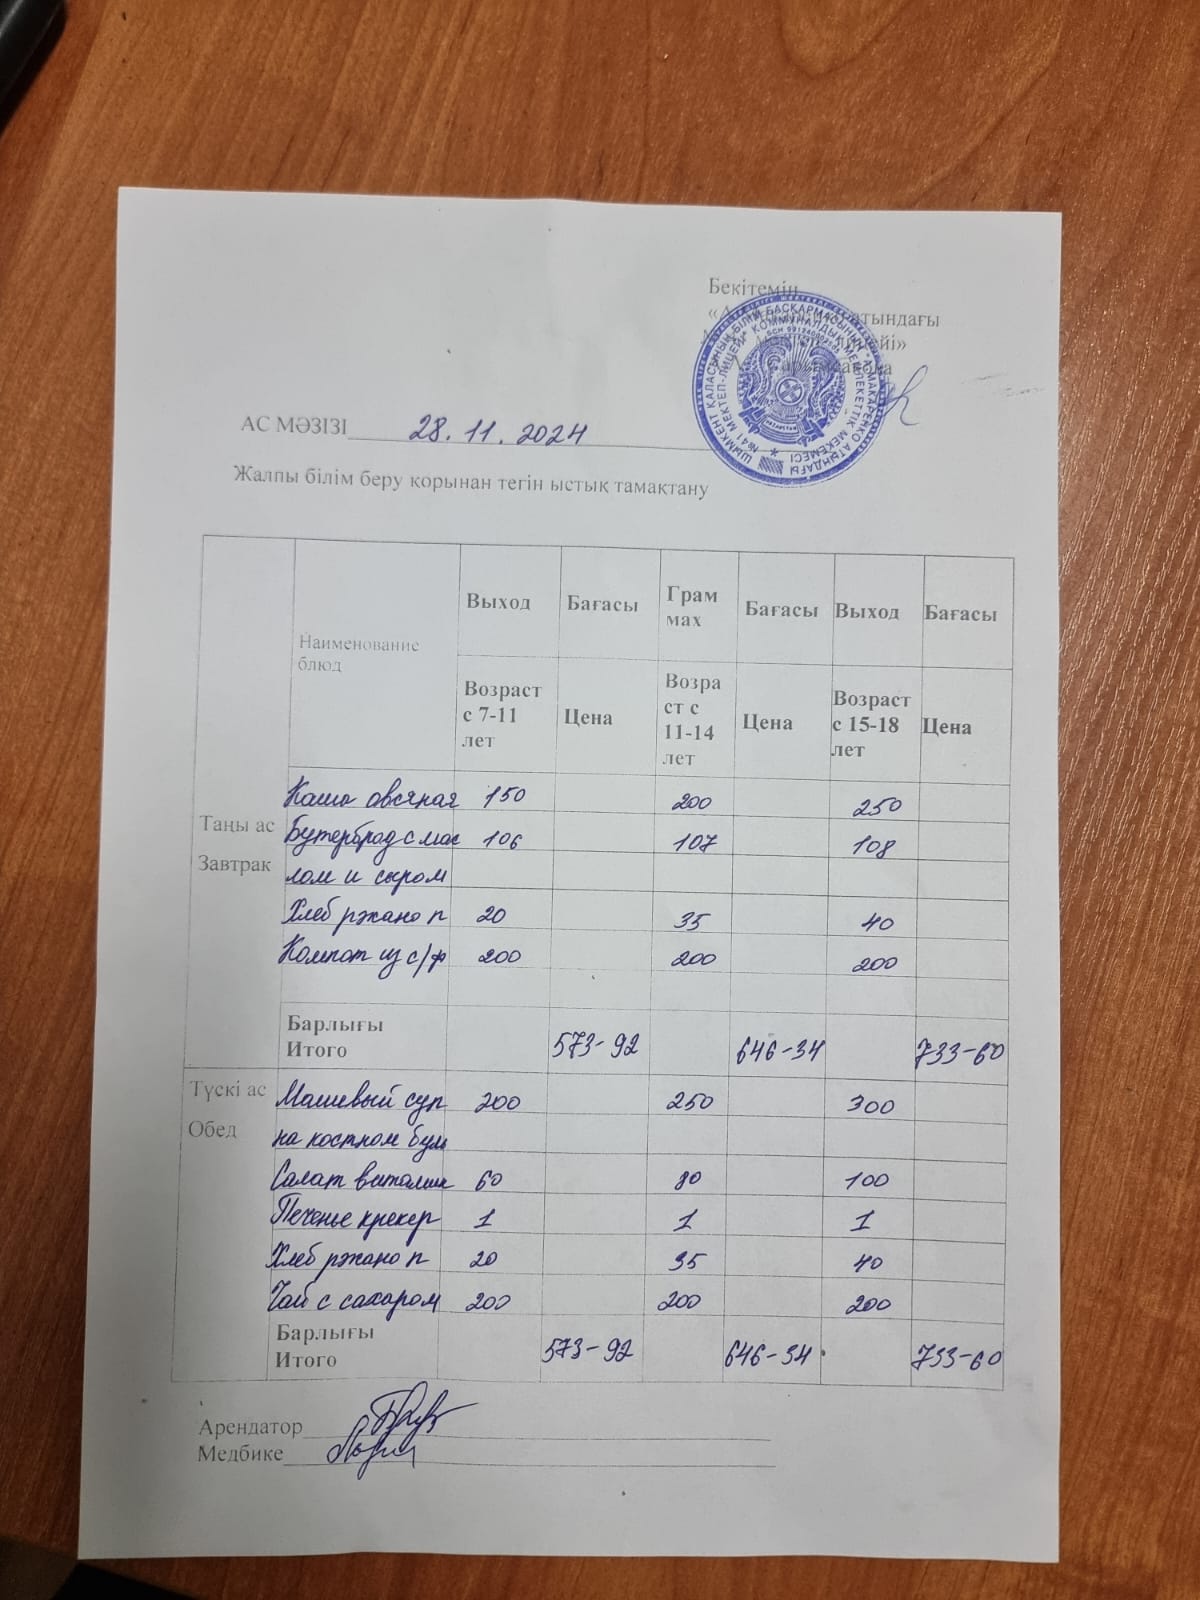 Бекітемін
атындағы
АС МӘЗІЗІ 28.11.2024
Жалпы білім беру қорынан тегін ыстық тамақтану
Наименование блюд Выход Бағасы Грам мах Бағасы Выход Бағасы
Возраст с 7-11 лет Цена Возра ст с 11-14 лет Цена Возраст с 15-18 лет Цена
Таңы ас
Завтрак
Каша овсяная 150 200 250
Бутерброд с мас 106 107 108
лом и сыром
Хлеб ржано п 20 35 40
Компот из с/ф 200 200 200
Барлығы
Итого 573-92 646-34 733-60
Түскі ас
Обед
Машевый суп 200 250 300
на костном бул
Салат витамин 60 80 100
Печенье крекер 1 1 1
Хлеб ржано п 20 35 40
Чай с сахаром 200 200 200
Барлығы
Итого 573-92 646-34 733-60
Арендатор
Медбике